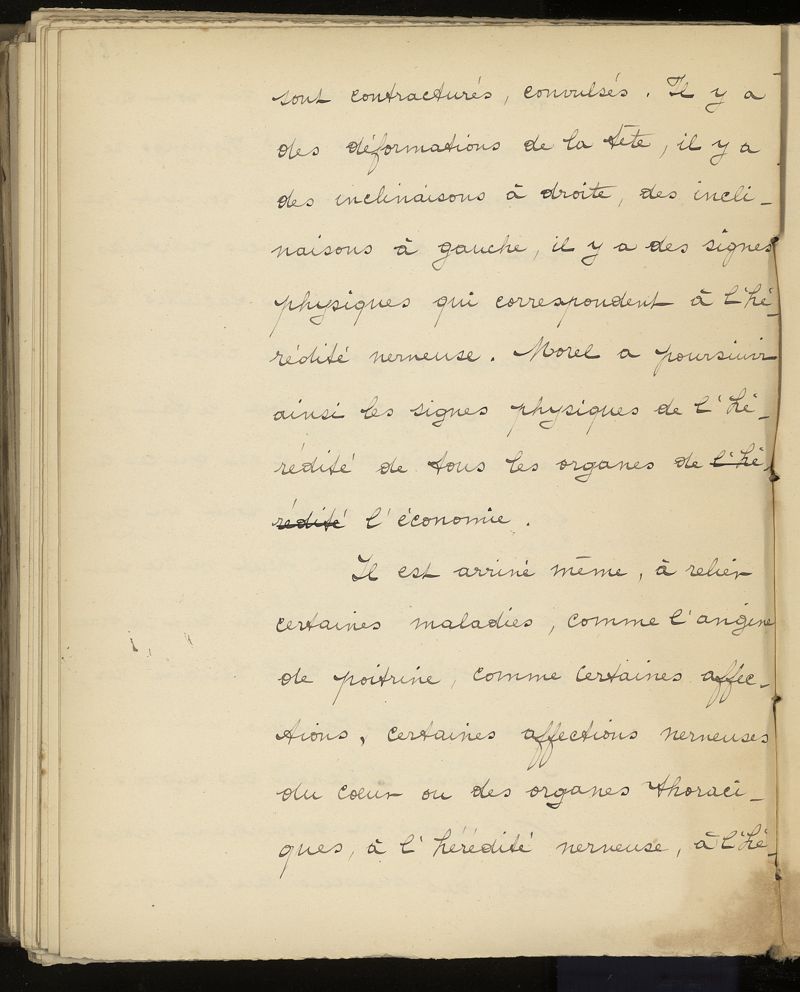 sont contracturés, convulsés. Il y a
des déformations de la tête, il y a
des inclinaisons à droite, des incli-
naisons à gauche, il y a des signes
physiques qui correspondent à l'hé-
rédité nerveuse. Morel a poursuivi
ainsi les signes physiques de l'hé-
rédité de tous les organes de l'hé-
rédité l'économie.
Il est arrivé même, à relier
certaines maladies, comme l'angine
de poitrine, comme certaines affec-
tions, certaines affections nerveuses
du cœur ou des organes thoraci-
ques, à l'hérédité nerveuse, à l'hé-